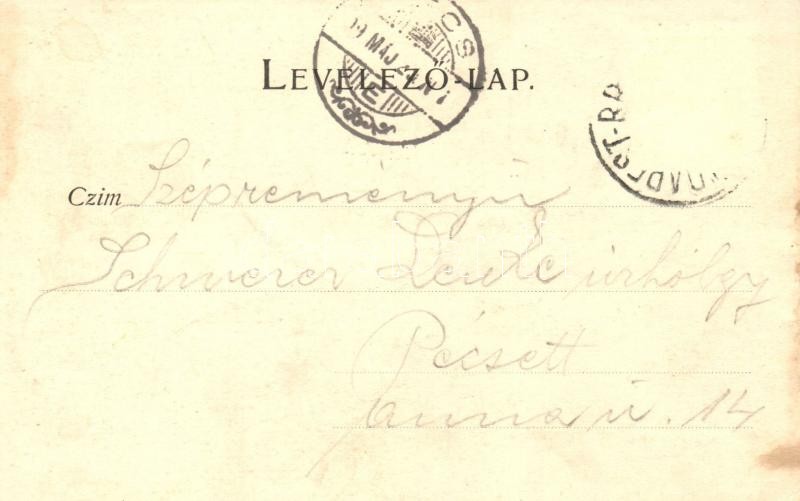 LEVELEZŐ-LAP.
CS
MÁJ
Czim Szépreményü
Schwerer Lenke úrhölgy
Pécsett
Anna u. 14